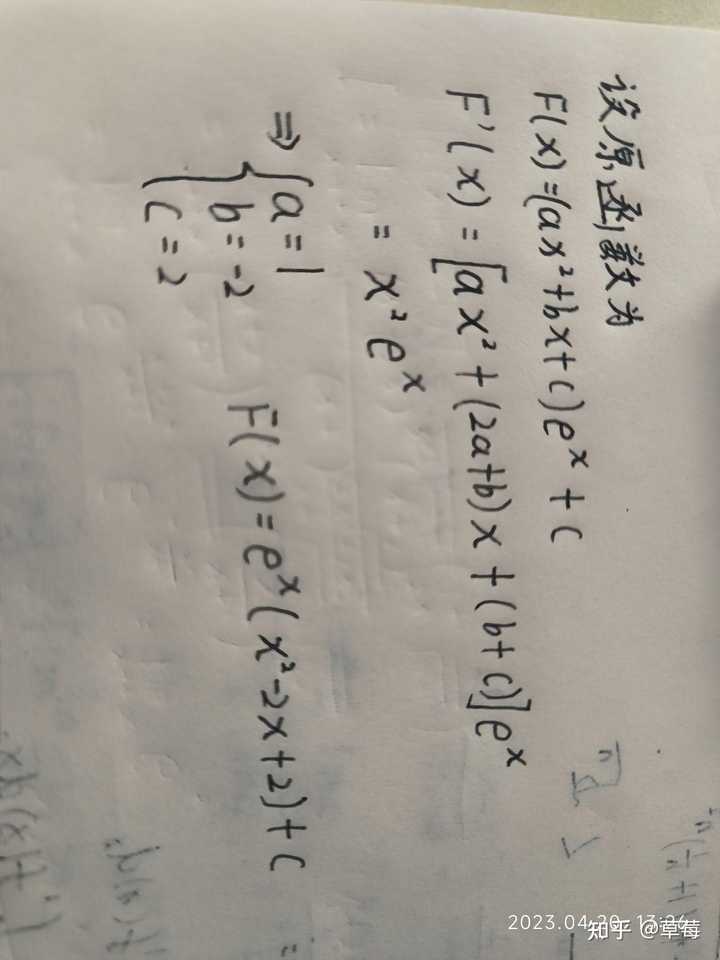 设原函数为
F(x)=(ax²+bx+c)eˣ+c
F'(x)=[ax²+(2a+b)x+(b+c)]eˣ
=x²eˣ
⇒{a=1
b=-2
c=2
F(x)=eˣ(x²-2x+2)+c
2023.04.20 13:26
知乎 @草莓